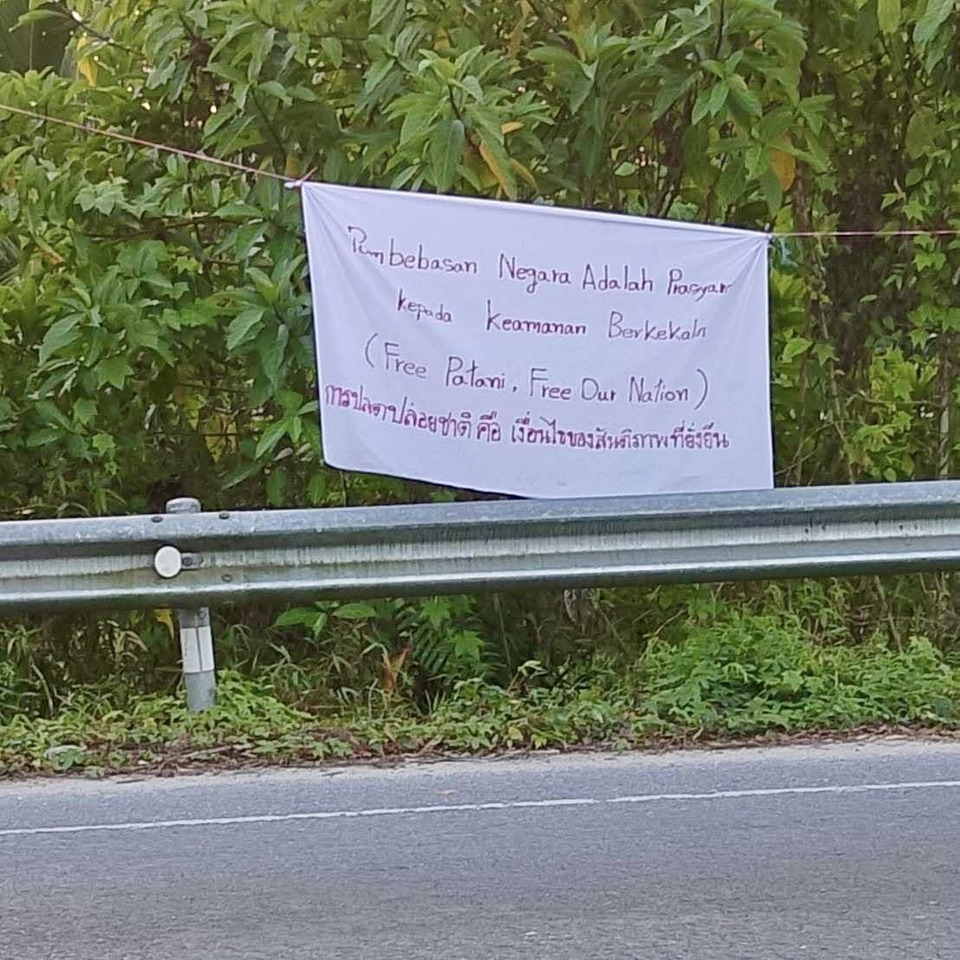 Pembebasan Negara Adalah Prasyarat
kepada Keamanan Berkekaln
(Free Patani, Free Our Nation)
การปลดปล่อยชาติ คือ เงื่อนไขของสันติภาพที่ยั่งยืน